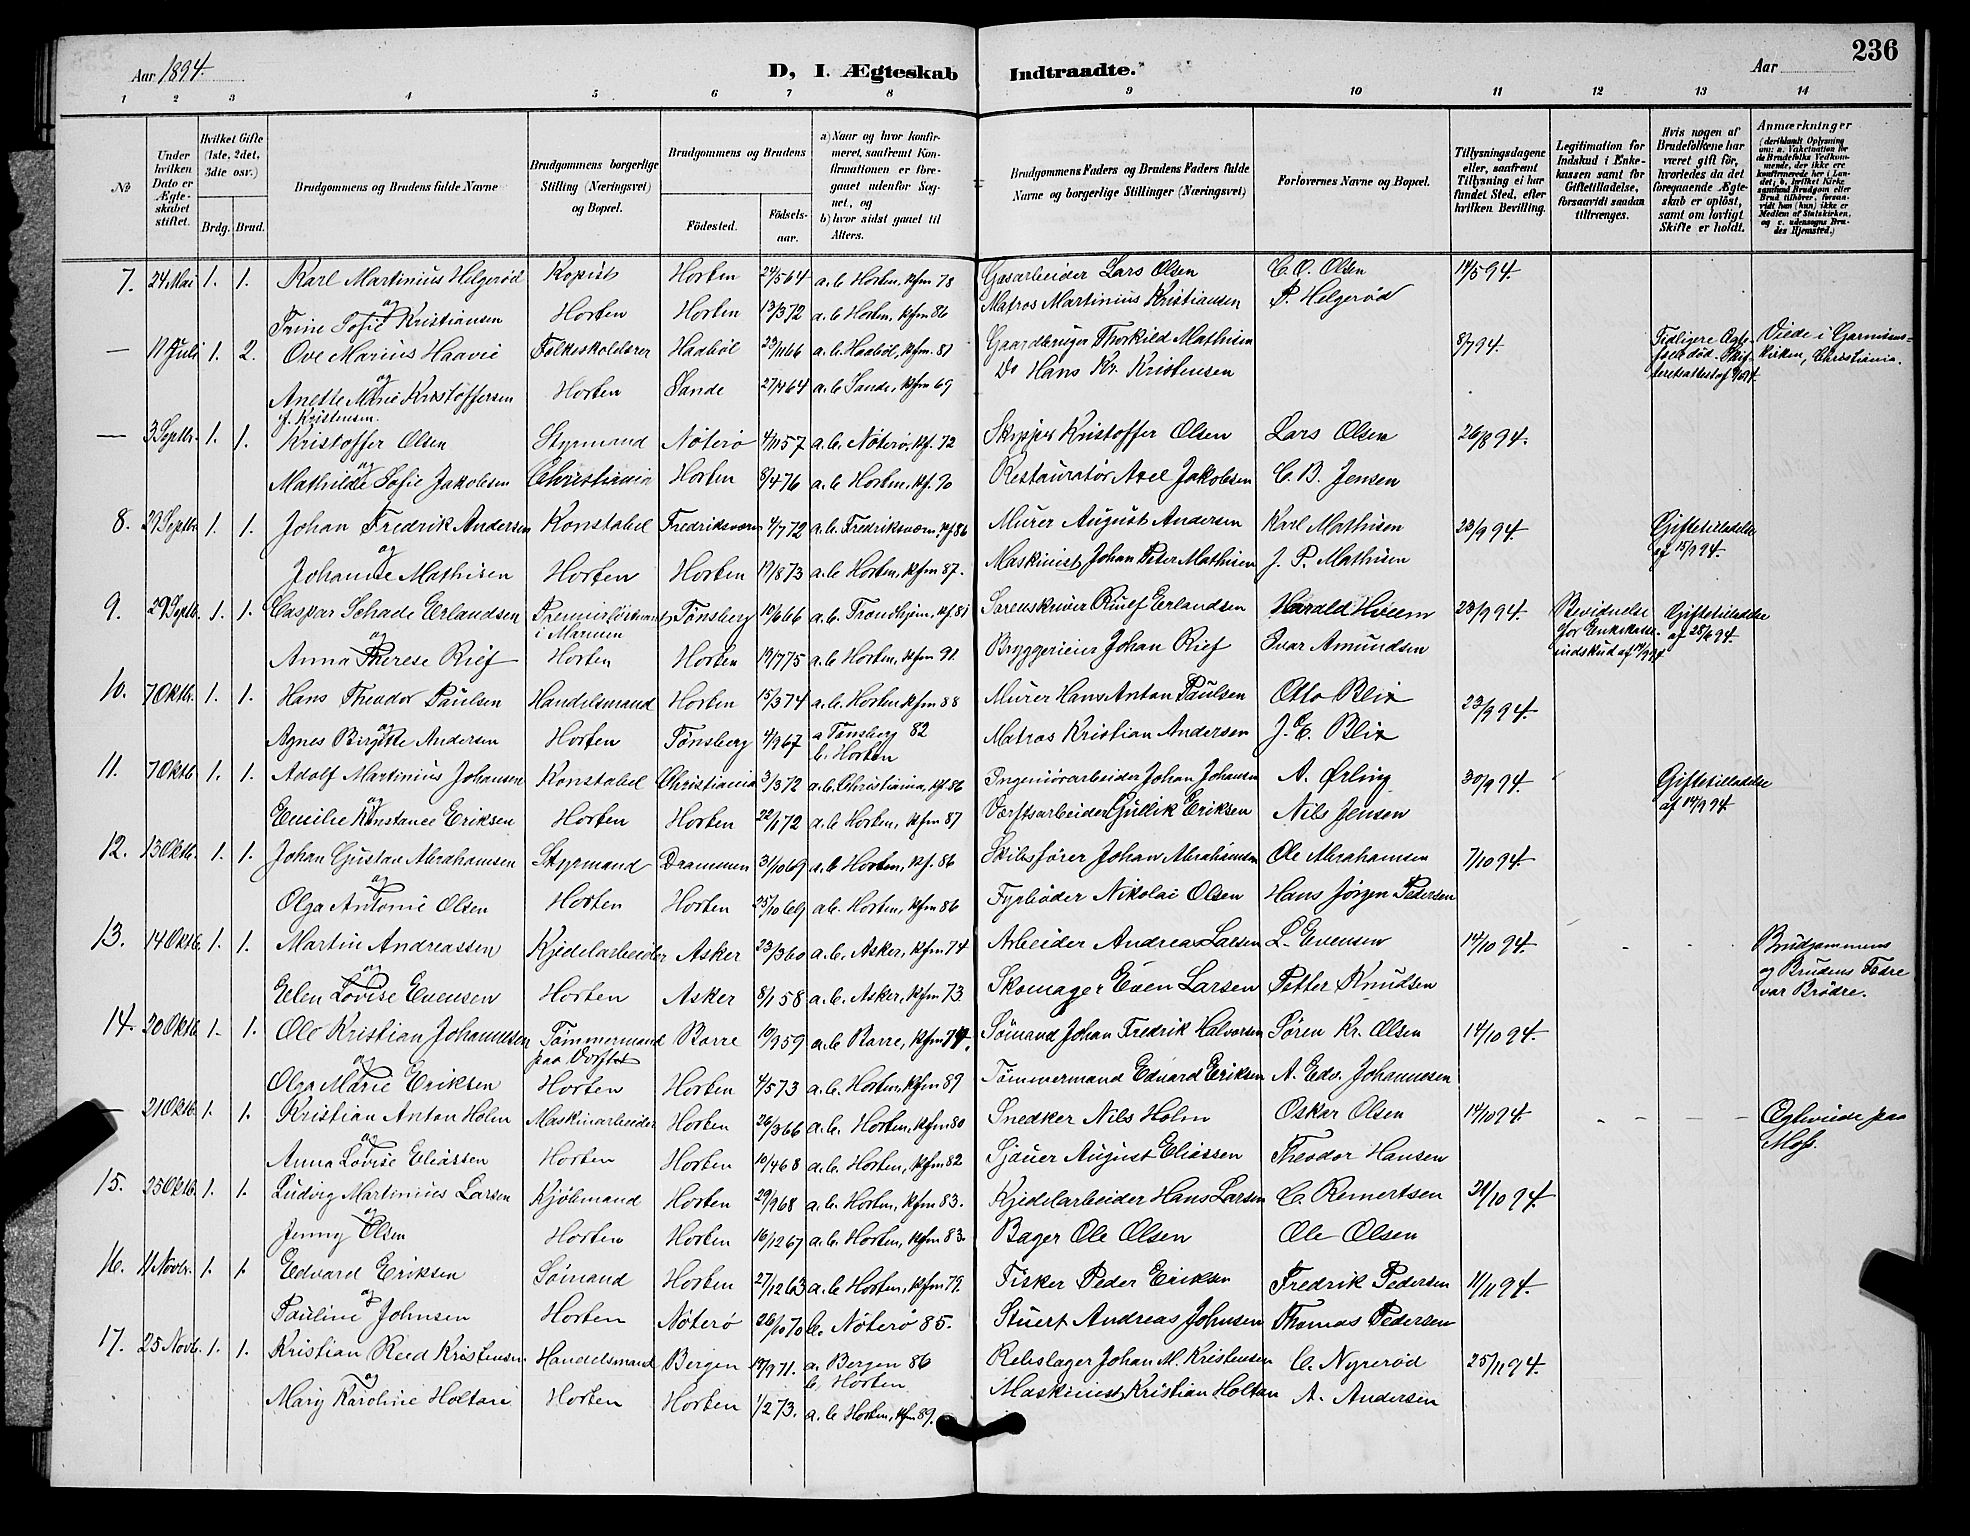 236
Aar 1894. D, I. Ægteskab Indtraadte. Aar
1 2 3 4 5 6 7 8 9 10 11 12 13 14
No
Under hvilken Dato er Ægteskabet stiftet.
Hvilket Gifte (1ste, 2det, 3die osv.)
Brdg. Brud.
Brudgommens og Brudens fulde Navne
Brudgommens borgerlige Stilling (Næringsvei) og Bopæl.
Brudgommens og Brudens
Fødested. Fødselsaar.
a) Naar og hvor konfirmeret, saafremt Konfirmationen er foregaaet udenfor Sognet, og
b) hvor sidst gaaet til Alters.
Brudgommens Faders og Brudens Faders fulde Navne og borgerlige Stillinger (Næringsvei)
Forlovernes Navne og Bopæl.
Tillysningsdagene eller, saafremt Tillysning ei har fundet Sted, efter hvilken Bevilling.
Legitimation for Indskud i Enkekassen samt for Giftetilladelse, forsaavidt saadan tiltrænges.
Hvis nogen af Brudefolkene har været gift før, hvorledes da det foregaaende Ægteskab er opløst, samt om lovligt Skifte er holdt.
Anmærkninger
7. 24 Mai 1. 1. Karl Martinius Helgerød Kopist Horten 24/5 64 a.b Horten, Kfm 78 Gasarbeider Lars Olsen C. O. Olsen 14/5 94.
og
Trine Sofie Kristiansen Horten Horten 13/3 72 a.b Horten, Kfm 86 Matros Martinius Kristiansen P. Helgerød
— 11 Juli 1. 2. Ove Marius Haavie Folkeskolelærer Haabøl 23/11 66 a.b. Haabøl, Kfm. 81 Gaardbruger Thorkild Mathisen 8/7 94. Tidligere Ægtefælle død. Viede i Garnisonskirken, Christiania.
og
Anette Marie Kristoffersen Horten Sande a.b Sande, Kfm 69 Do Hans Kr. Kristensen
f. Kristensen.
— 3 Septbr. 1. 1. Kristoffer Olsen Styrmand Nøterø 4/11 57 a.b. Nøterø, Kf. 72 Skipper Kristoffer Olsen Lars Olsen 26/8 94.
og
Mathilde Sofie Jakobsen Christiania Horten 8/4 76 a.b Horten, Kf. 90 Restauratør Axel Jakobsen C. B. Jensen
8. 29 Septbr. 1. 1. Johan Fredrik Andersen Konstabel Fredriksværn 4/7 72 a.b. Fredriksværn, Kf 86 Murer August Andersen Karl Mathisen 23/9 94. Giftetilladelse af 15/9 94.
og
Johanne Mathisen Horten Horten 19/8 73 a.b Horten, Kfm 87. Maskinist Johan Peter Mathisen J. P. Mathisen
9. 29 Septb. 1. 1. Caspar Schade Erlandsen Premierløitnant Tønsberg 10/6 66 a.b. Trondhjem, Kf 81 Sorenskriver Ruief Erlandsen Harald Hveem 23/9 94. Bevidnelse for Enkekasseindskud af Giftetilladelse af 28/6 94.
og i Marinen
Anna Therese Rief Horten Horten 19/7 75 a.b Horten, Kfm 91. Bryggerieier Johan Rief Ivar Amundsen
10. 7 Oktb. 1. 1. Hans Theodor Paulsen Handelsmand Horten 15/3 74 a.b. Horten Kfm 88 Murer Hans Anton Paulsen Otto Blix 23/9 94.
og
Agnes Birgitte Andersen Horten Tønsberg 4/9 67 a Tønsberg 82 Matros Kristian Andersen J. C. Blix
b. Horten
11. 7 Oktb. 1. 1. Adolf Martinius Johansen Konstabel Christiania 3/3 72 a.b. Christiania, Kf. 86 Ingeniørarbeider Johan Johansen A. Ørling 30/9 94. Giftetilladelse af 14/9 94.
og
Emilie Konstance Eriksen Horten Horten 22/1 72 a.b Horten, Kfm 87 Værftsarbeider Gullik Eriksen Nils Jensen
12. 13 Oktb. 1. 1. Johan Gustav Abrahamsen Styrmand Drammen 31/10 69 a.b Horten, Kf. 86 Skibsfører Johan Abrahamsen Ole Abrahamsen 7/10 94.
og
Olga Antonie Olsen Horten Horten 25/10 69 ab. Horten, Kfm 86 Fyrbøder Nikolai Olsen Hans Jørgen Pedersen
13. 14 Oktb. 1. 1. Martin Andreassen Kjedelarbeider Asker 23/3 60 a.b. Asker, Kfm 74 Arbeider Andreas Larsen L. Evensen 14/10 94. Brudgommens og Brudens Fædre var Brødre.
og
Elen Lovise Evensen Horten Asker 8/1 58 a.b. Asker, Kfm 73. Skomager Even Larsen Petter Knudsen
14. 20 Oktb. 1. 1. Ole Kristian Johannessen Tømmermand Borre 19/9 59 a.b Borre, Kfm 74. Sømand Johan Fredrik Halvorsen Søren Kr. Olsen 14/10 94.
og paa Værftet
Olga Marie Eriksen Horten Horten 4/5 73 a.b. Horten, Kfm 89 Tømmermand Edvard Eriksen A. Edv. Johannesen
— 21 Oktb. 1. 1. Kristian Anton Holm Maskinarbeider Horten 26/3 66 a.b. Horten, Kfm 80 Snedker Nils Holm Oskar Olsen 14/10 94. Ægteviede paa Moss.
og
Anna Lovise Eliassen Horten Horten 10/4 68 a.b. Horten, Kfm 82 Sjauer August Eliassen Theodor Hansen
15. 25 Oktb. 1. 1. Ludvig Martinius Larsen Kjøbmand Horten 29/9 68 a.b. Horten, Kfm 83. Kjedelarbeider Hans Larsen C. Reinertsen 21/10 94.
og
Jenny Olsen Horten Horten 16/12 67 a.b. Horten, Kfm 83. Bager Ole Olsen Ole Olsen
16. 11 Novbr. 1. 1. Edvard Eriksen Sømand Horten 27/12 63 a.b Horten, Kfm 79. Fisker Peder Eriksen Fredrik Pedersen 11/11 94.
og
Pauline Johnsen Horten Nøterø 26/10 70 b. Nøterø 85. Stuert Andreas Johnsen Thomas Pedersen
17. 25 Novb. 1. 1. Kristian Reed Kristensen Handelsmand Bergen 19/9 71. a. Bergen 86 Rebslager Johan M. Kristensen C. Nyrerød 25/11 94.
og b, Horten
Mary Karoline Holtan Horten Horten 1/2 73. a.b Horten, Kfm 89. Maskinist Kristian Holtan A. Andersen